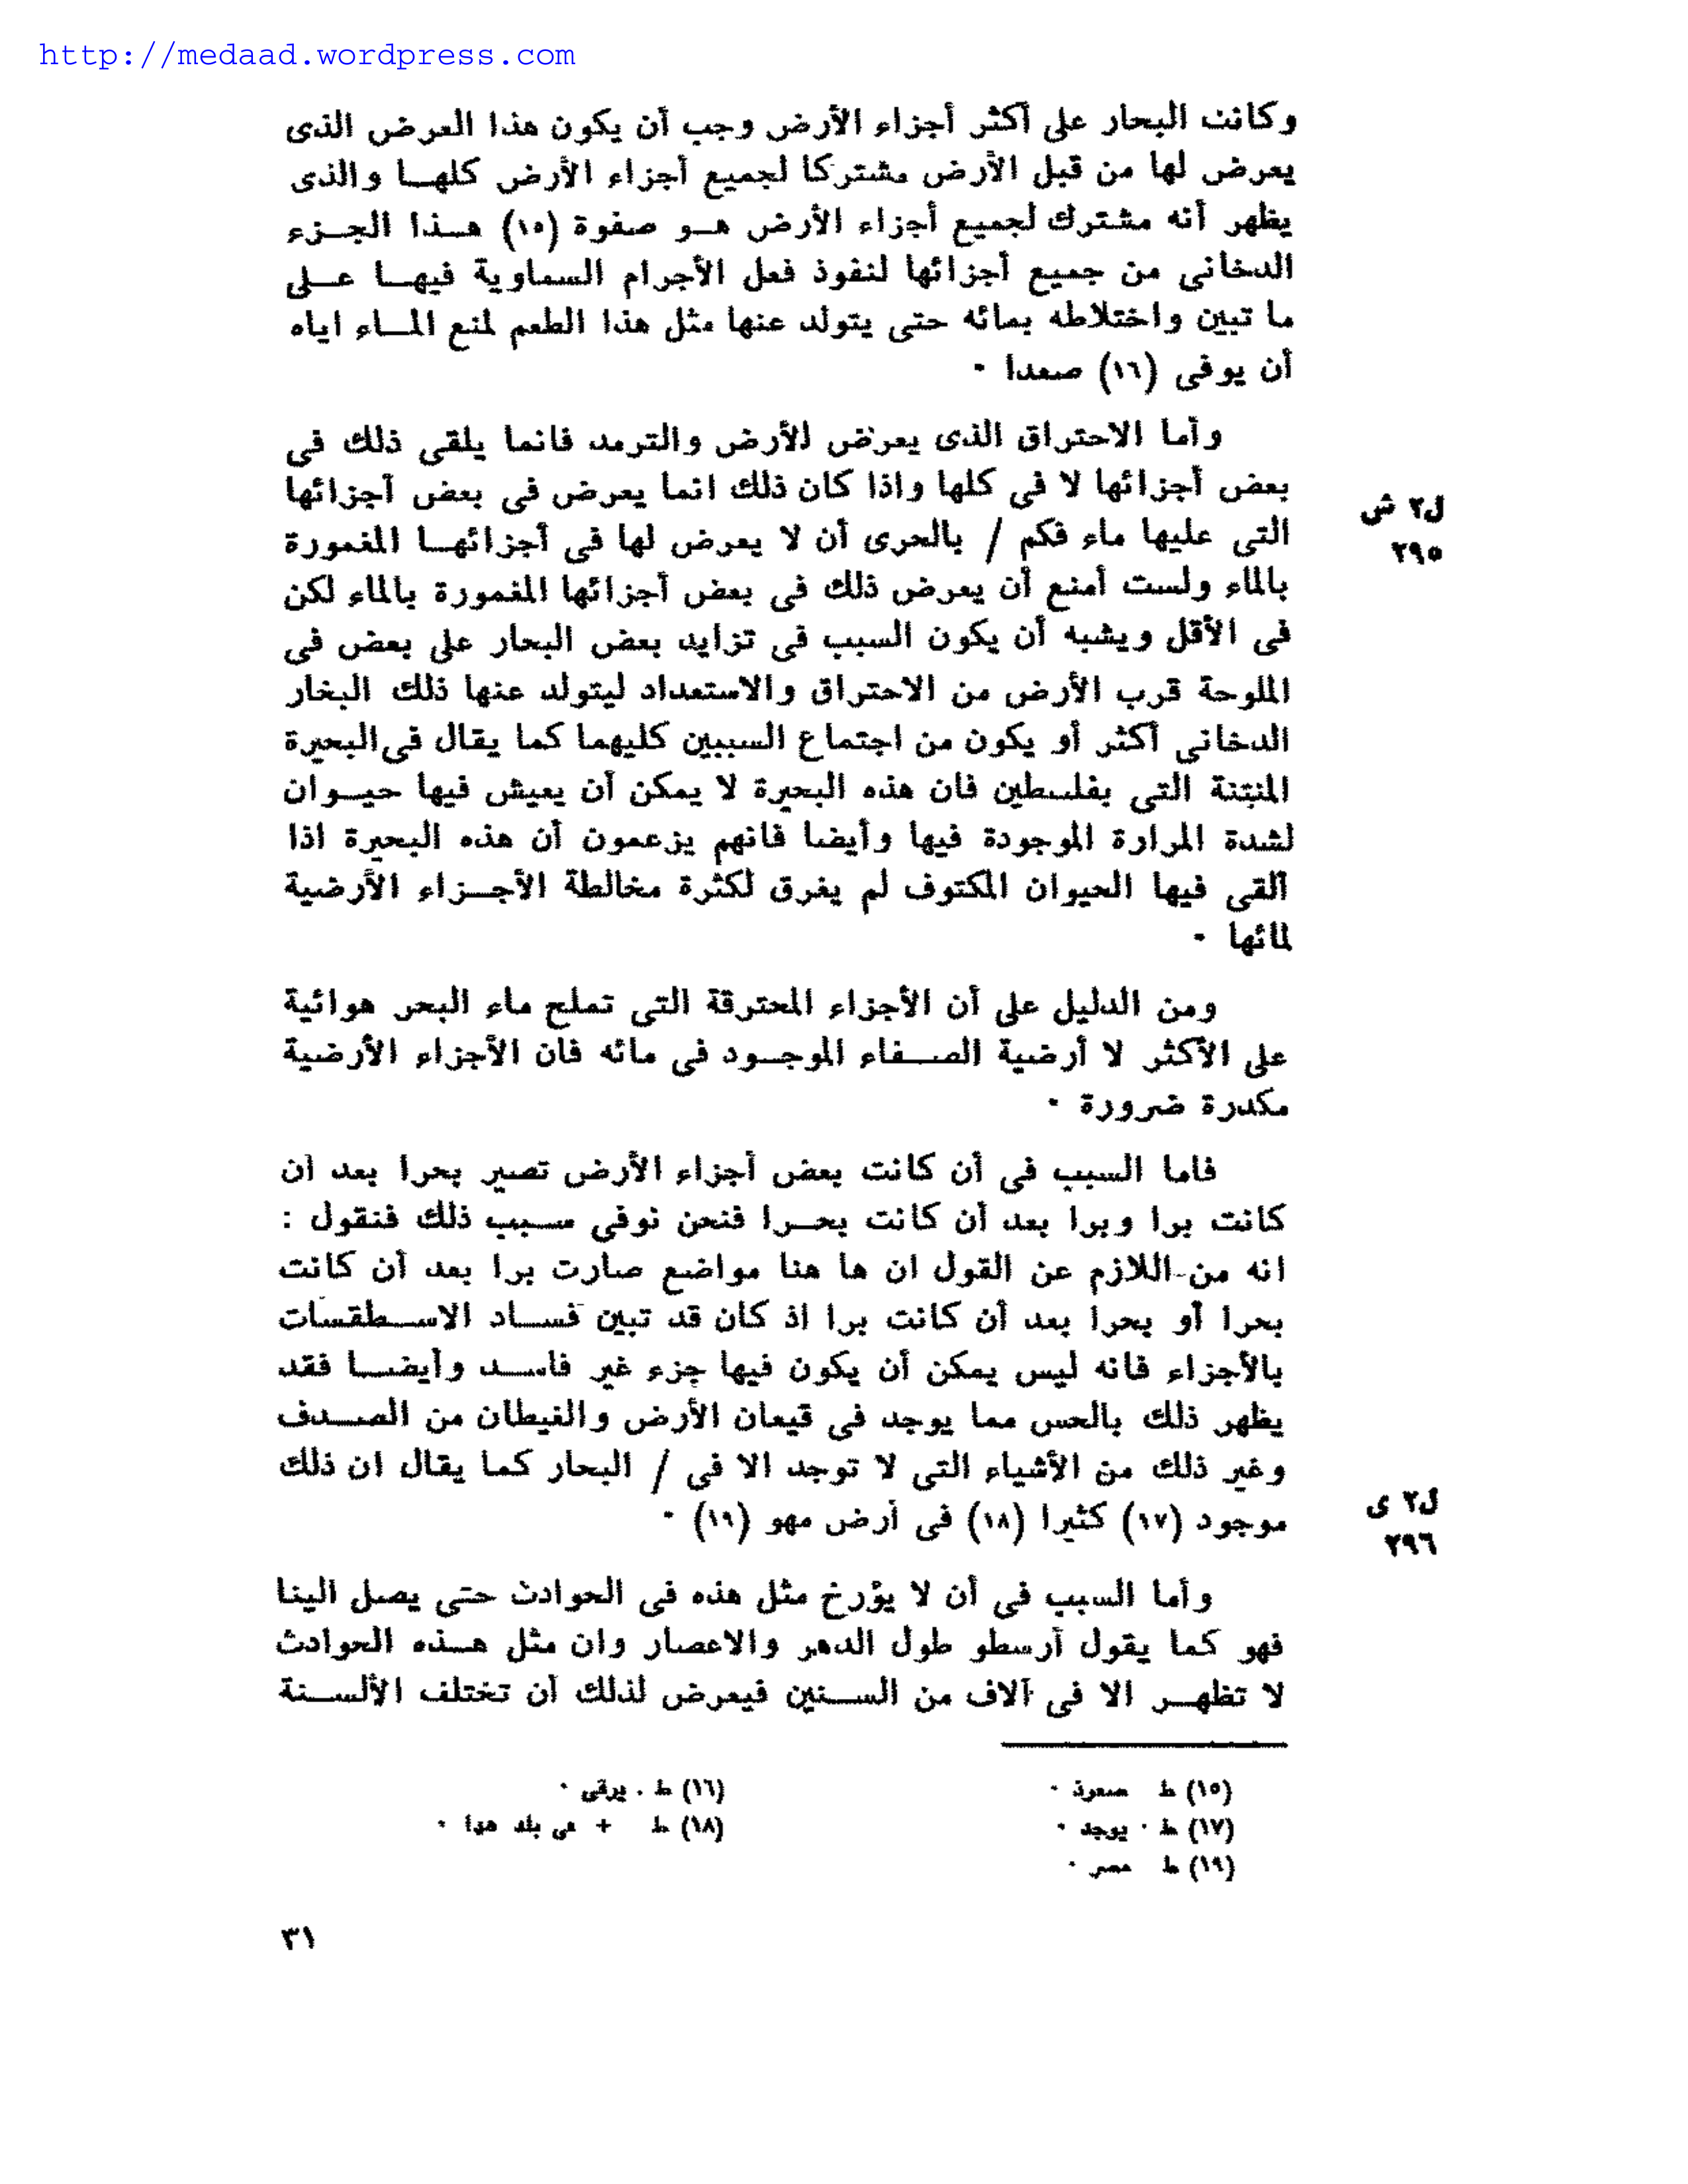 http://medaad.wordpress.com
وكانت البحار على أكثر أجزاء الأرض وجب أن يكون هذا العرض الذى
يعرض لها من قبل الأرض مشتركا لجميع أجزاء الأرض كلهــا والذى
يظهر أنه مشترك لجميع أجزاء الأرض هــو صفوة (١٥) هــذا الجــزء
الدخانى من جميع أجزائها لنفوذ فعل الأجرام السماوية فيهــا عــلى
ما تبين واختلاطه بمائه حتى يتولد عنها مثل هذا الطعم لمنع المــاء اياه
أن يوفى (١٦) صعدا ٠
وأما الاحتراق الذى يعرض للأرض والترمد فانما يلقى ذلك فى
بعض أجزائها لا فى كلها واذا كان ذلك انما يعرض فى بعض أجزائها
التى عليها ماء فكم / بالحرى أن لا يعرض لها فى أجزائهــا المغمورة
ل٢ ش
٢٩٥
بالماء ولست أمنع أن يعرض ذلك فى بعض أجزائها المغمورة بالماء لكن
فى الأقل ويشبه أن يكون السبب فى تزايد بعض البحار على بعض فى
الملوحة قرب الأرض من الاحتراق والاستعداد ليتولد عنها ذلك البخار
الدخانى أكثر أو يكون من اجتماع السببين كليهما كما يقال فى البحيرة
المنتنة التى بفلسطين فان هذه البحيرة لا يمكن أن يعيش فيها حيــوان
لشدة المرارة الموجودة فيها وأيضا فانهم يزعمون أن هذه البحيرة اذا
ألقى فيها الحيوان المكتوف لم يغرق لكثرة مخالطة الأجــزاء الأرضية
لمائها ٠
ومن الدليل على أن الأجزاء المحترقة التى تملح ماء البحر هوائية
على الأكثر لا أرضية الصــفاء الموجــود فى مائه فان الأجزاء الأرضية
مكدرة ضرورة ٠
فاما السبب فى أن كانت بعض أجزاء الأرض تصير بحرا بعد أن
كانت برا وبرا بعد أن كانت بحــرا فنحن نوفى ســبب ذلك فنقول :
انه من اللازم عن القول ان ها هنا مواضع صارت برا بعد أن كانت
بحرا أو بحرا بعد أن كانت برا اذ كان قد تبين فســاد الاســطقسات
بالأجزاء فانه ليس يمكن أن يكون فيها جزء غير فاســد وأيضــا فقد
يظهر ذلك بالحس مما يوجد فى قيعان الأرض والغيطان من الصــدف
وغير ذلك من الأشياء التى لا توجد الا فى / البحار كما يقال ان ذلك
ل٢ ى
٢٩٦
موجود (١٧) كثيرا (١٨) فى أرض مهو (١٩) ٠
وأما السبب فى أن لا يؤرخ مثل هذه فى الحوادث حتى يصل الينا
فهو كما يقول أرسطو طول الدهر والاعصار وان مثل هــذه الحوادث
لا تظهــر الا فى آلاف من الســنين فيعرض لذلك أن تختلف الألســنة
(١٥) ط صعوذ ٠
(١٦) ط . يرقى ٠
(١٧) ط ٠ يوجد ٠
(١٨) ط + فى بلد هوا ٠
(١٩) ط مصر ٠
٣١